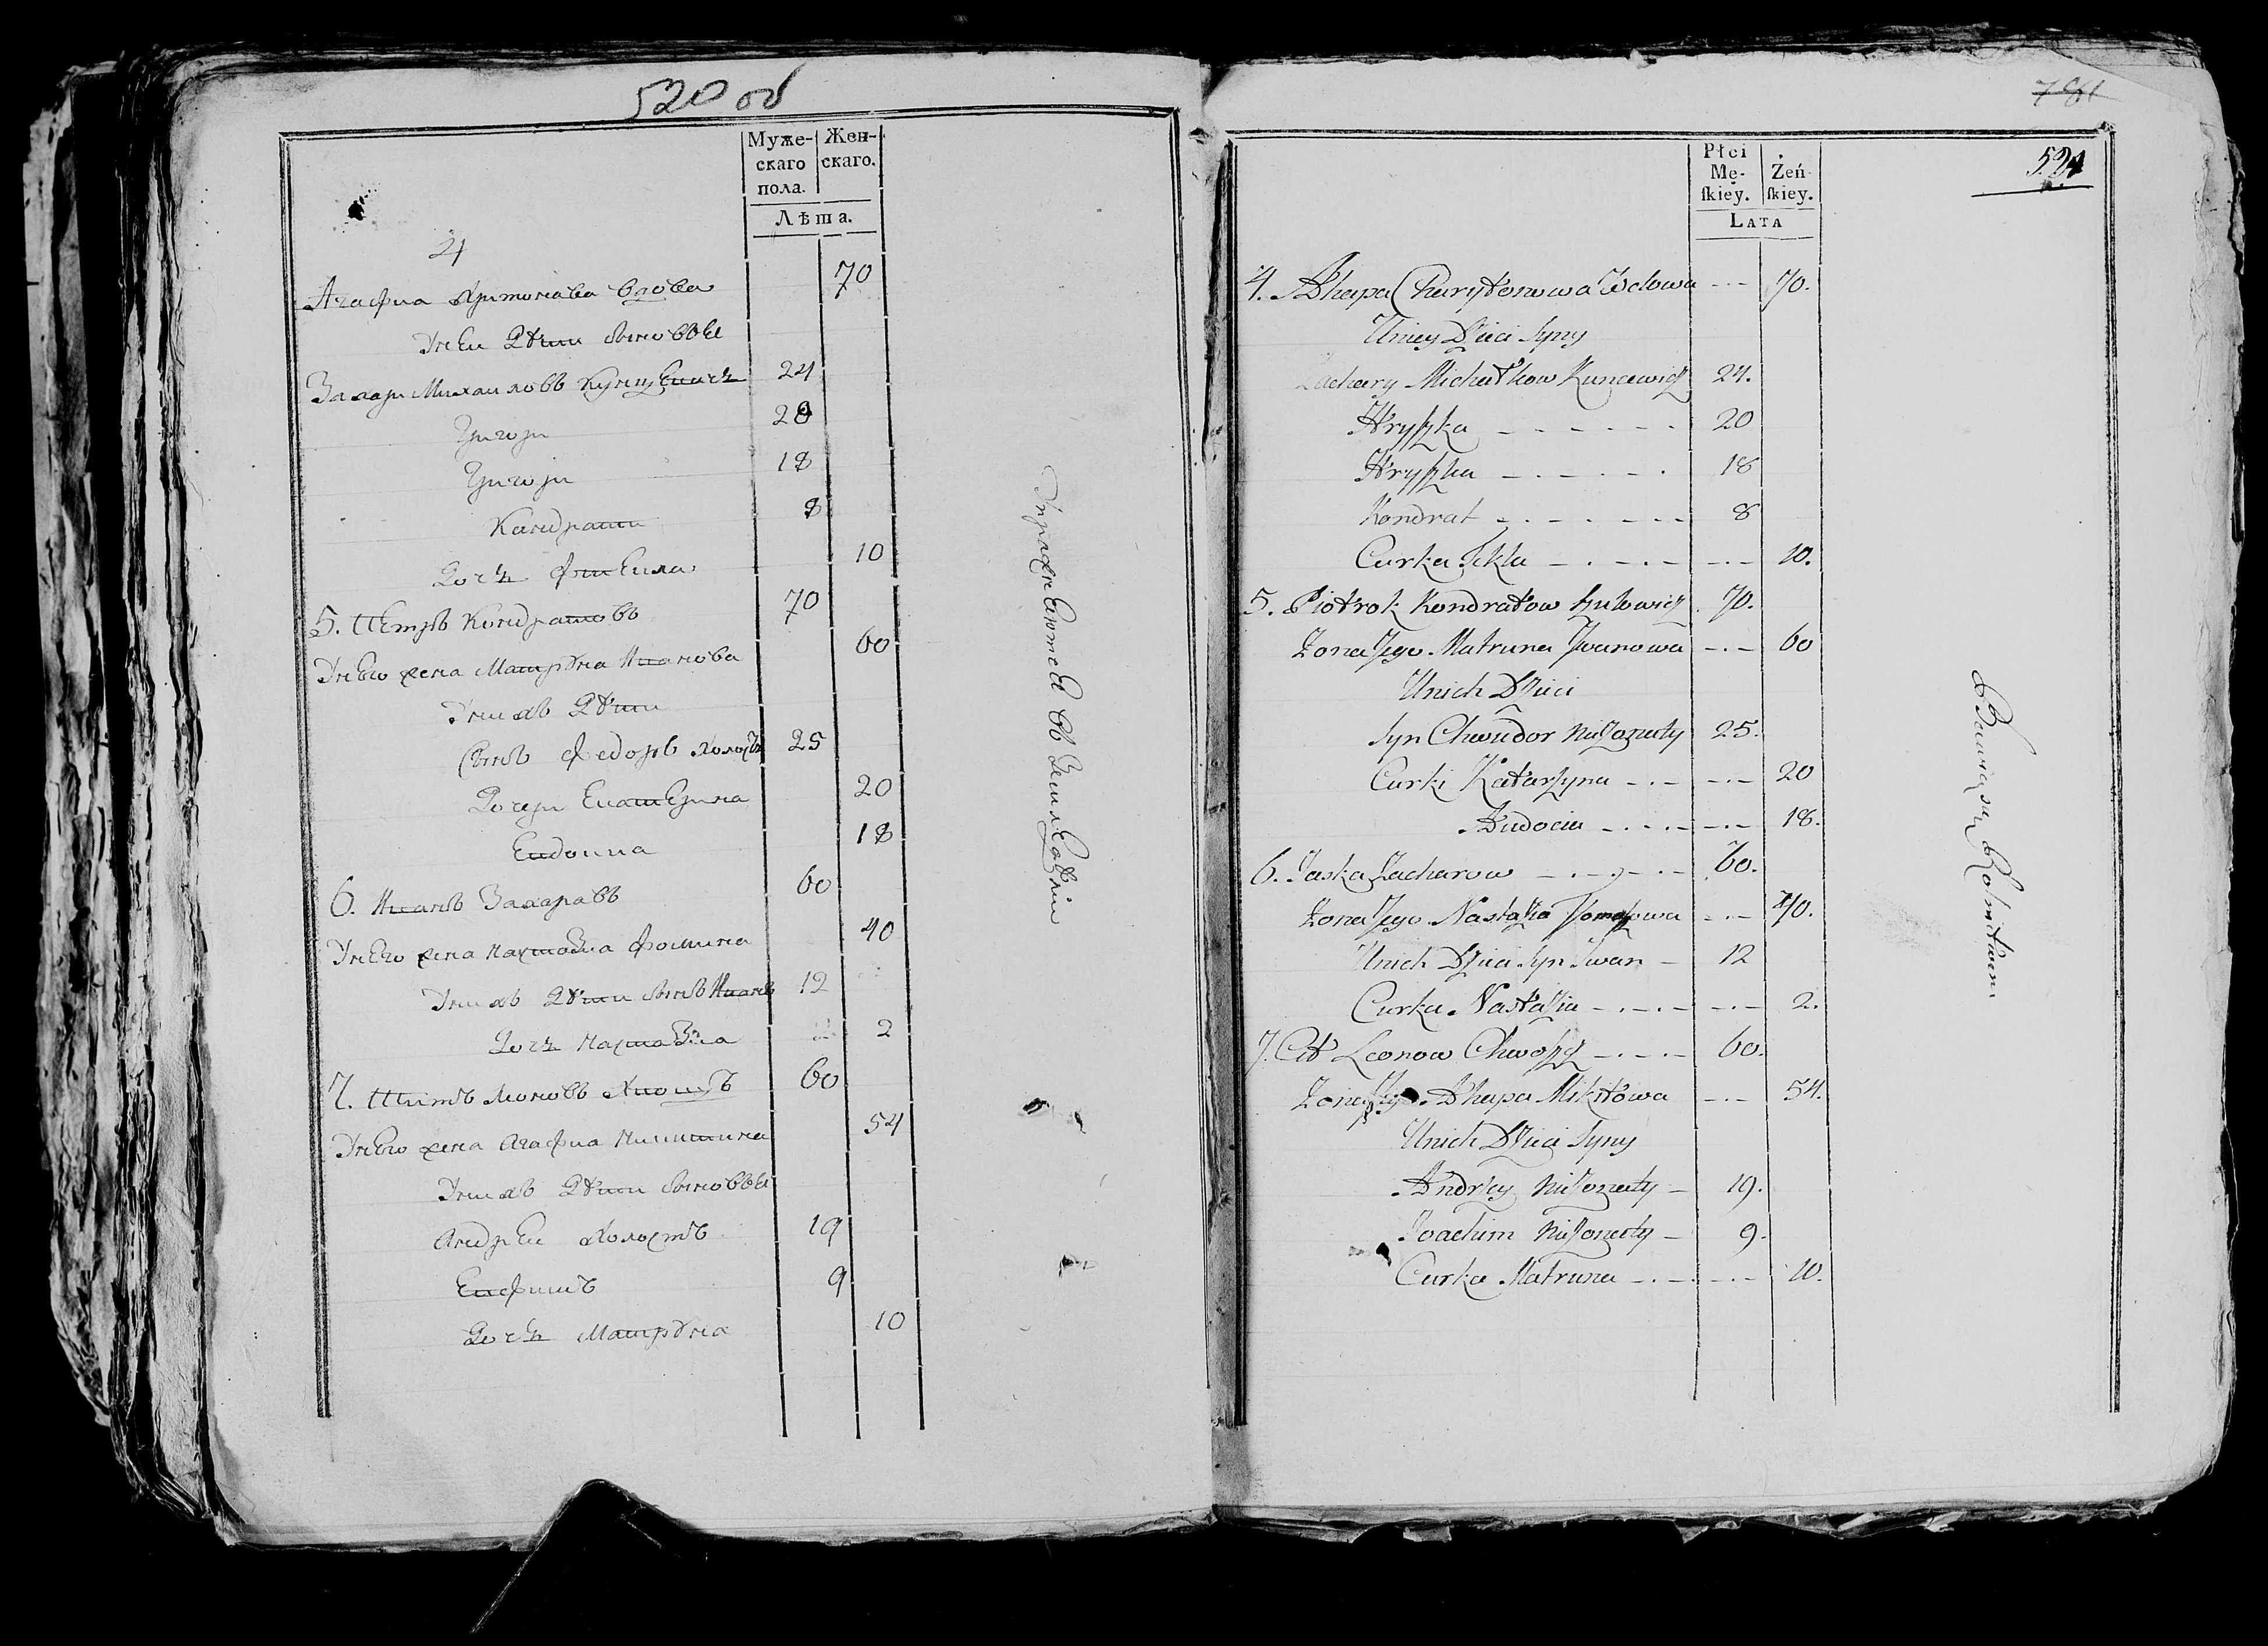 520 об
Муже- Жен-
скаго скаго.
пола.
Лѣта.
4
Агафиа Хритонава вдова 70
У неи Дѣти сыновѣя
Захар Михаиловъ Кунцевичь 24
Григори 20
Григори 18
Кандрати 8
Дочь Фтекла 10
5. Петръ Кондратовъ 70
У него жена Матрѣна Иванова 60
У них Дѣти
Сынъ Федоръ холост 25
Дочери Екатерина 20
Евдокиа 18
6. Иванъ Захаравъ 60
У него жена Настазиа Фомина 40
У них Дѣти сынъ Иванъ 12
Дочь Настазиа 2
7. Титъ Леоновъ Хвощъ 60
У него жена Агафиа Никитина 54
У них Дѣти сыновѣя
Андреи Холостъ 19
Ефимъ 9
Дочь Матрѣна 10
Упражняютея въ Земледѣлии
781
521
Płci
Mę- Żeń-
ſkiey. ſkiey.
LATA
4. Ahapa Charytonowa Wdowa 70.
U niey Dzieci Syny
Zachary Michałkow Kuncewicz 24.
Hryszka 20
Hryszka 18
Kondrat 8
Curka Tekla 10.
5. Piotrok Kondratow 70.
Zona Jego Matruna Jwanowa 60
U nich Dzieci
Syn Chwiedor nieżonaty 25.
Curki Katarzyna 20
Audocia 18.
6. Jaska Zacharow 60.
Zona Jego Nastazia Tomaszowa 40.
U nich Dzieci Syn Iwan 12
Curka Nastazia 2.
7. Cit Leonow Chwoszcz 60.
Zona Jego Ahapa Mikitowa 54.
U nich Dzieci Syny
Andrzey nieżonaty 19.
Joachim nieżonaty 9.
Curka Matruna 10.